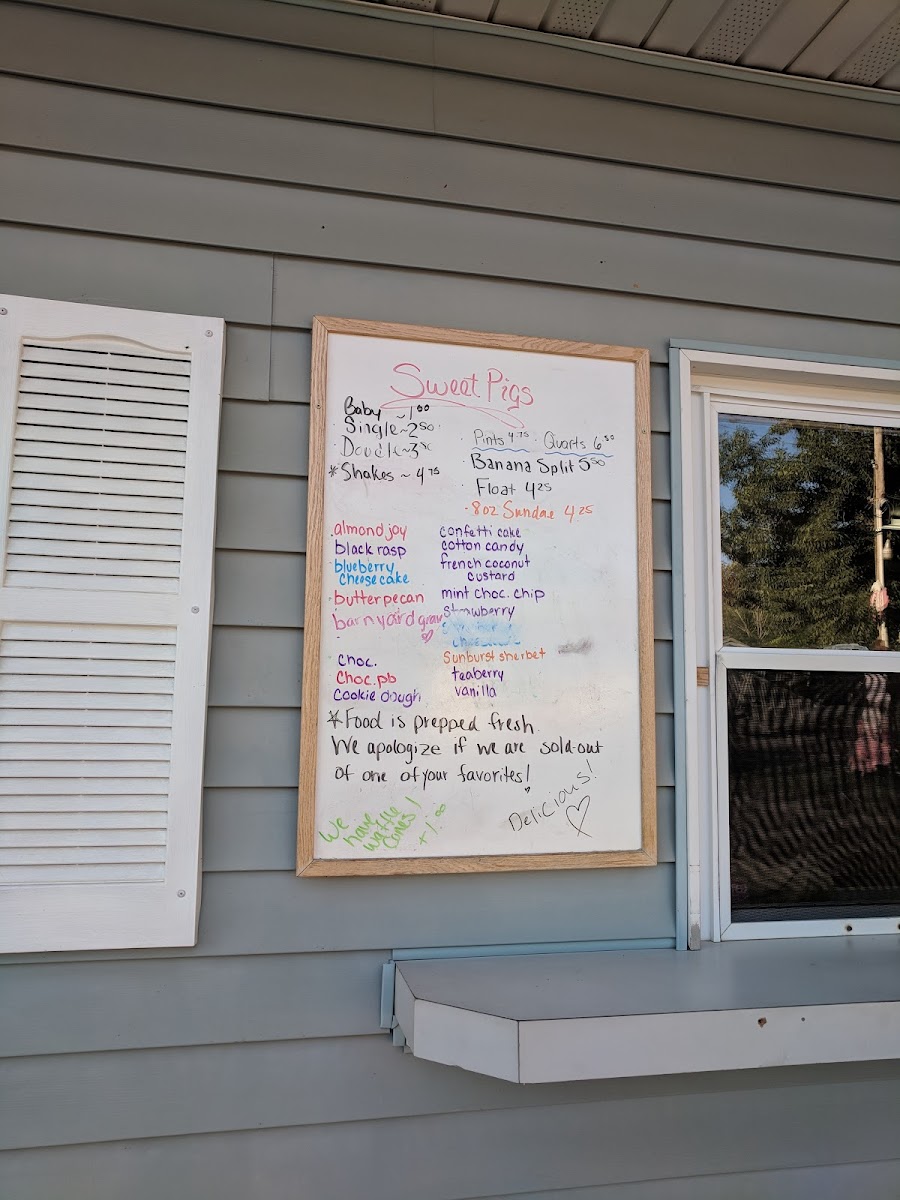 Sweet Pigs
Baby ~ 1.00
Single ~ 2.50
Double ~ 3.50
*Shakes ~ 4.75
· Pints 4.75 · Quarts 6.50
· Banana Split 5.50
· Float 4.25
· 8oz Sundae 4.25
almond joy
black rasp
blueberry
cheesecake
butter pecan
barnyard
choc.
choc. pb
cookie dough
confetti cake
cotton candy
french coconut
custard
mint choc. chip
strawberry
Sunburst sherbet
teaberry
vanilla
*Food is prepped fresh.
We apologize if we are sold out
of one of your favorites!
We
have
waffle
cones!
+1.00
Delicious!